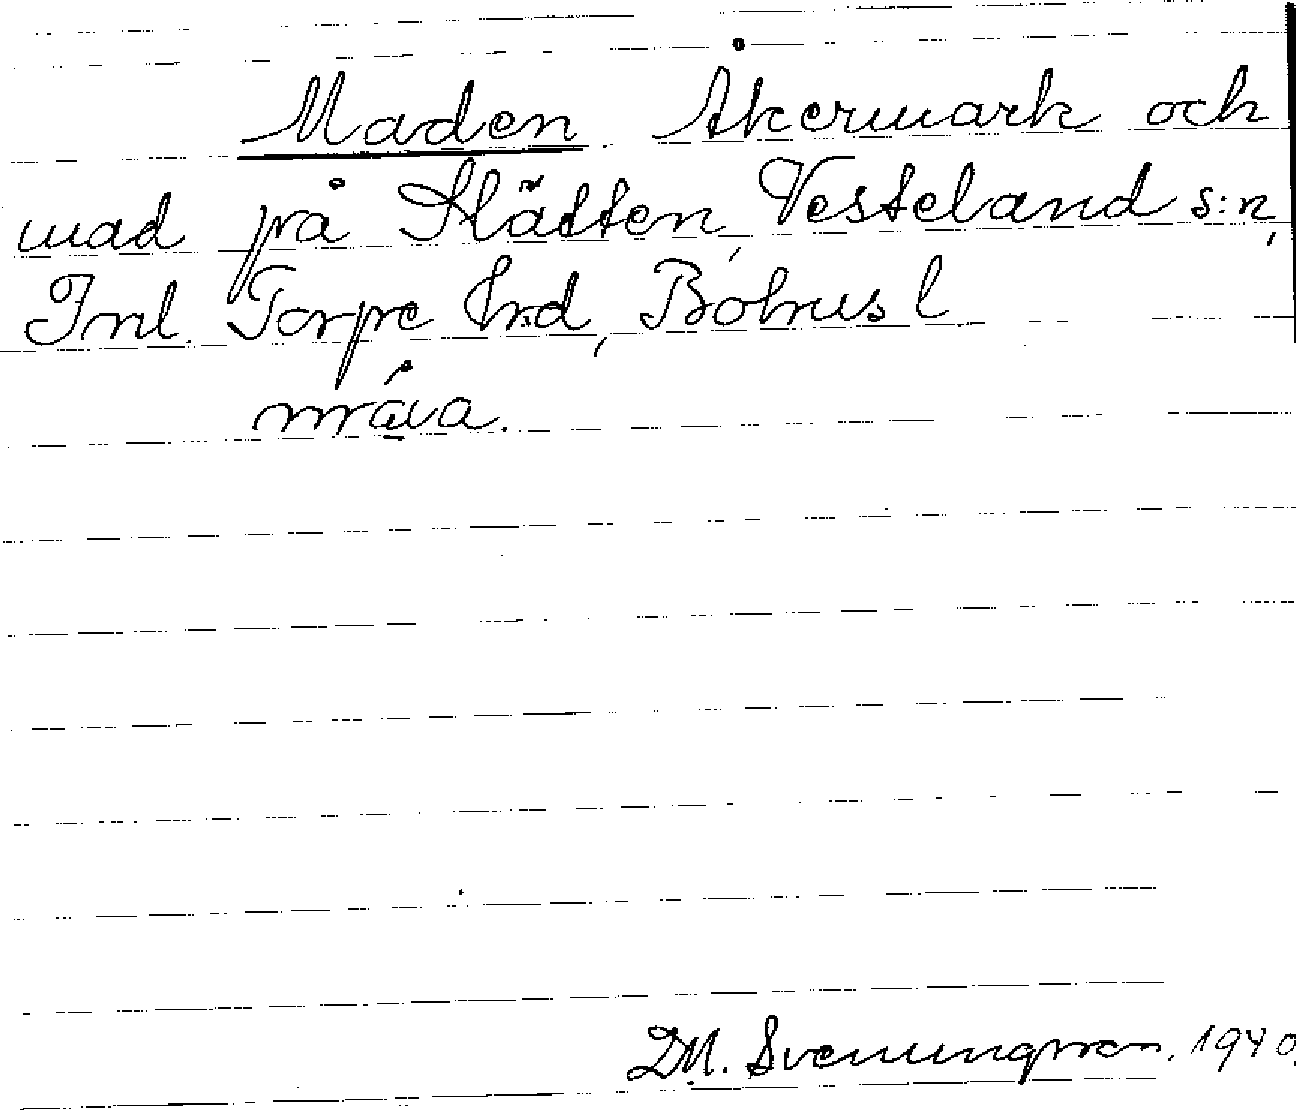 Maden. Åkermark och
mad på Slätten, Vesteland s:n,
Inl. Torpe hrd, Bohus l
mráva.
D.M. Svenningsson. 1940.